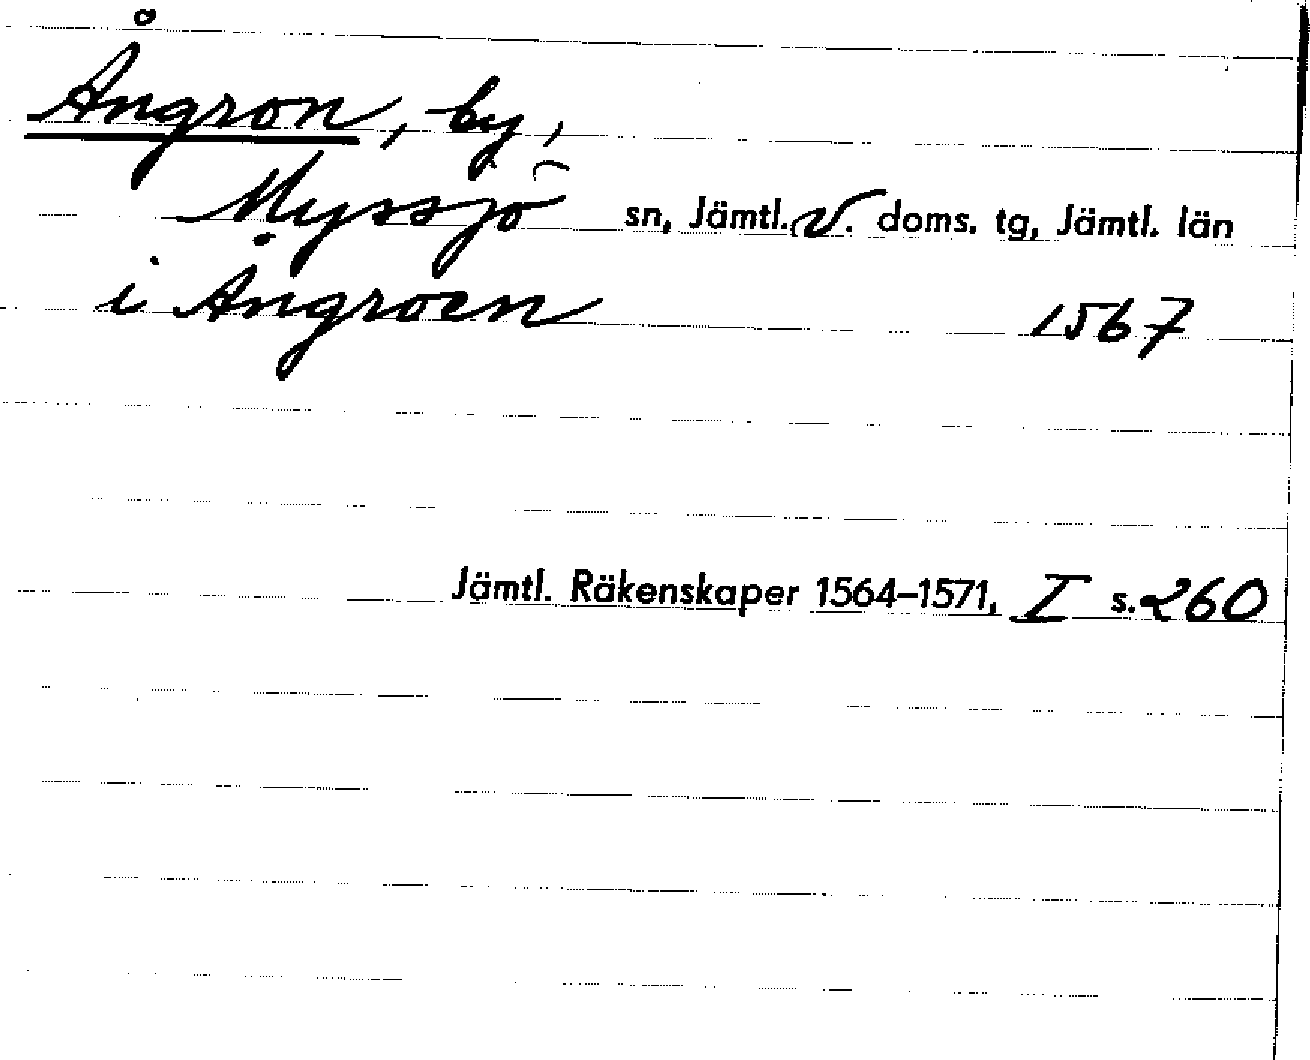 Ångron, by,
Myssjö sn, Jämtl. v. doms. tg, Jämtl. län
i Ångroen 1567
Jämtl. Räkenskaper 1564–1571, I s. 260